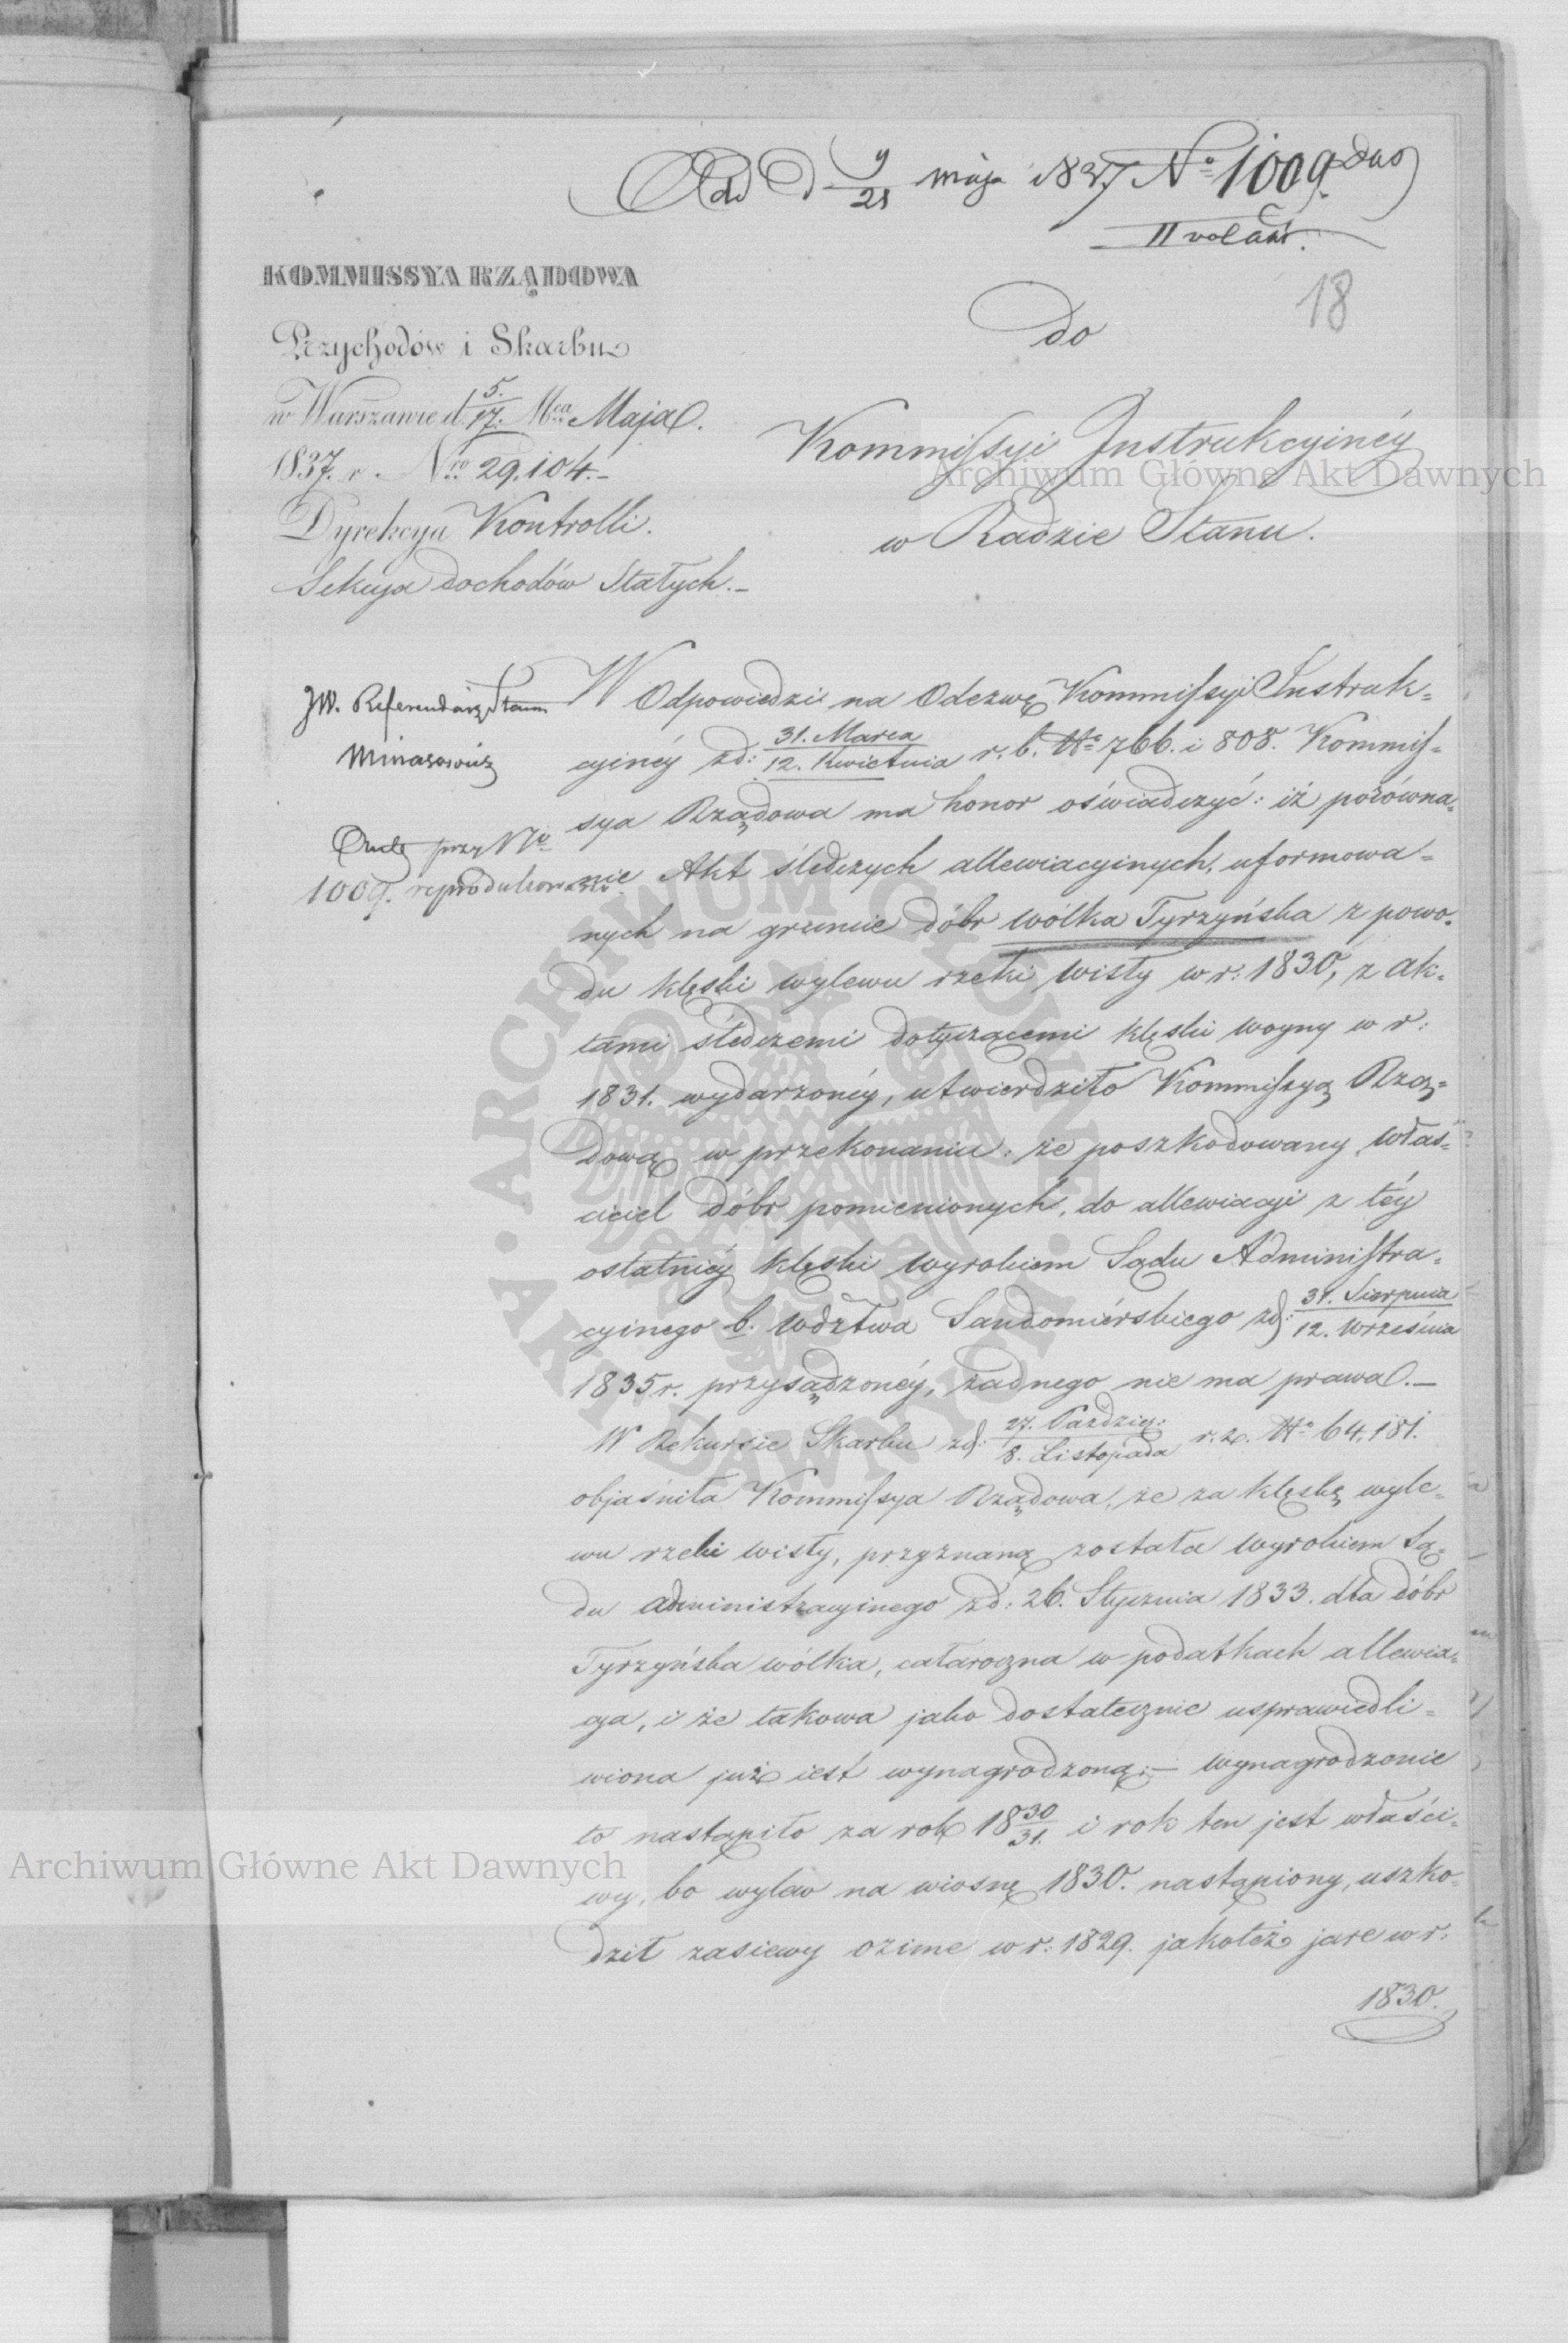 Odd D 9/21 maja 1837 No 1009.
II vol akt.
18
KOMMISSYA RZĄDOWA
Przychodów i Skarbu
w Warszawie d. 5./17. Mca Maja
1837. r. Nro 29,104.-
Dyrekcya Kontrolli.
Sekcya dochodów Stałych.-
do
Kommissyi Instrukcyinéy
w Radzie Stanu.
JW. Referendarz Stanu
Minasowicz
przy No
1009. reprodukowane
W Odpowiedzi na Odezwę Kommissyi Instruk=
cyinéy zd: 31. Marca/12. Kwietnia r. b. No 766. i 808. Kommis=
sya Rządowa ma honor oświadczyć: iż porówna=
nie Akt śledczych allewiacyinych, uformowa=
nych na gruncie dóbr Wólka Tyrzyńska z powo=
du klęski wylewu rzeki Wisły w r: 1830, z ak=
tami śledczemi dotyczącemi klęski woyny w r:
1831. wydarzonéy, utwierdziło Kommissyą Rzą=
dową w przekonaniu: że poszkodowany właś=
ciciel dóbr pomienionych, do allewiacyi z téy
ostatniéy klęski wyrokiem Sądu Administra=
cyinego b. Wdztwa Sandomiérskiego zd: 31. Sierpnia/12. Września
1835 r. przysądzonéy, żadnego nie ma prawa.-
W Rekursie Skarbu zd: 27. Paździer:/8. Listopada r. z. No 64,181.
objaśniła Kommissya Rządowa, że za klęskę wyle=
wu rzeki Wisły, przyznaną została wyrokiem Są=
du administracyinego zd: 26. Stycznia 1833. dla dóbr
Tyrzyńska wólka, całoroczna w podatkach allewia=
cya, i że takowa jako dostatecznie usprawiedli=
wiona już iest wynagrodzoną;- wynagrodzenie
to nastąpiło za rok 1830/31. i rok ten jest właści=
wy, bo wylew na wiosnę 1830. nastąpiony, uszko=
dził zasiewy ozime w r: 1829. jakoteż jare w r:
1830.
Archiwum Główne Akt Dawnych
Archiwum Główne Akt Dawnych
ARCHIWUM GŁÓWNE AKT DAWNYCH